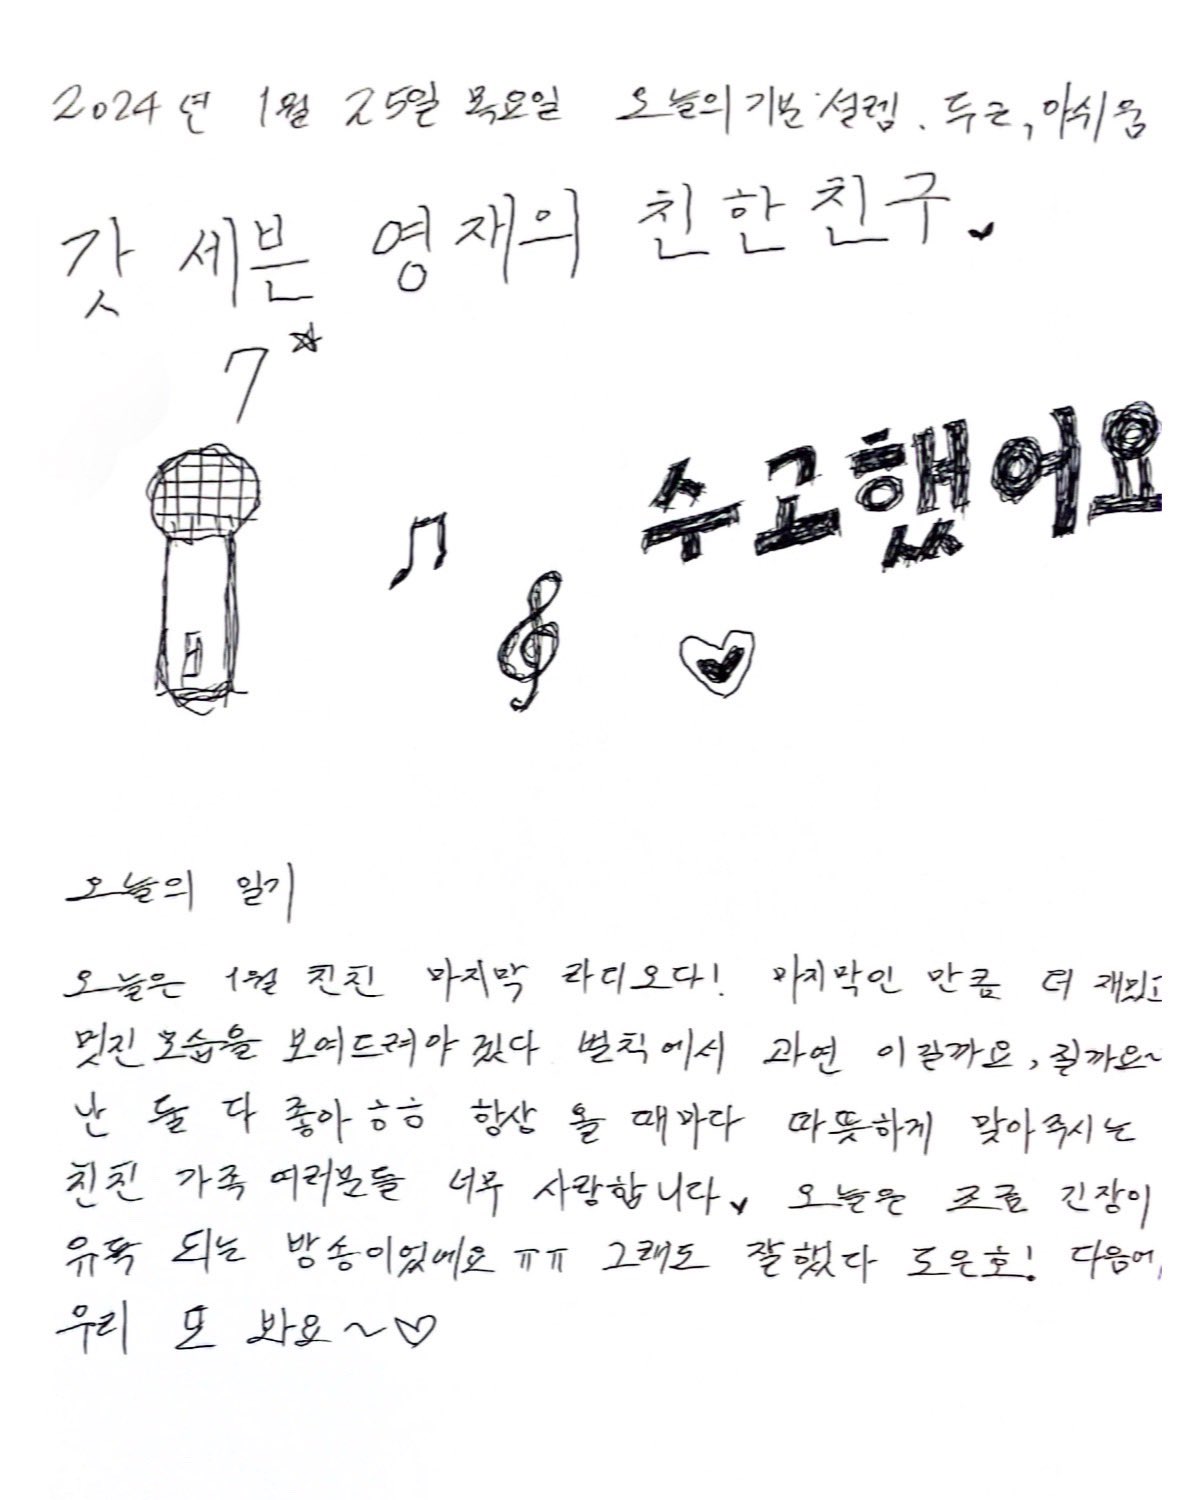 2024년 1월 25일 목요일 오늘의 기분: 설렘. 두근, 아쉬움
갓세븐 영재의 친한친구
7
수고했어요
오늘의 일기
오늘은 1월 친친 마지막 라디오다! 마지막인 만큼 더 재밌고
멋진 모습을 보여드려야겠다 벌칙에서 과연 이길까요, 질까요~
난 둘 다 좋아ㅎㅎ 항상 올 때마다 따뜻하게 맞아주시는
친친 가족 여러분들 너무 사랑합니다 오늘은 조금 긴장이
유독 되는 방송이었네요 ㅠㅠ 그래도 잘했다 도은호! 다음에
우리 또 봐요~♡